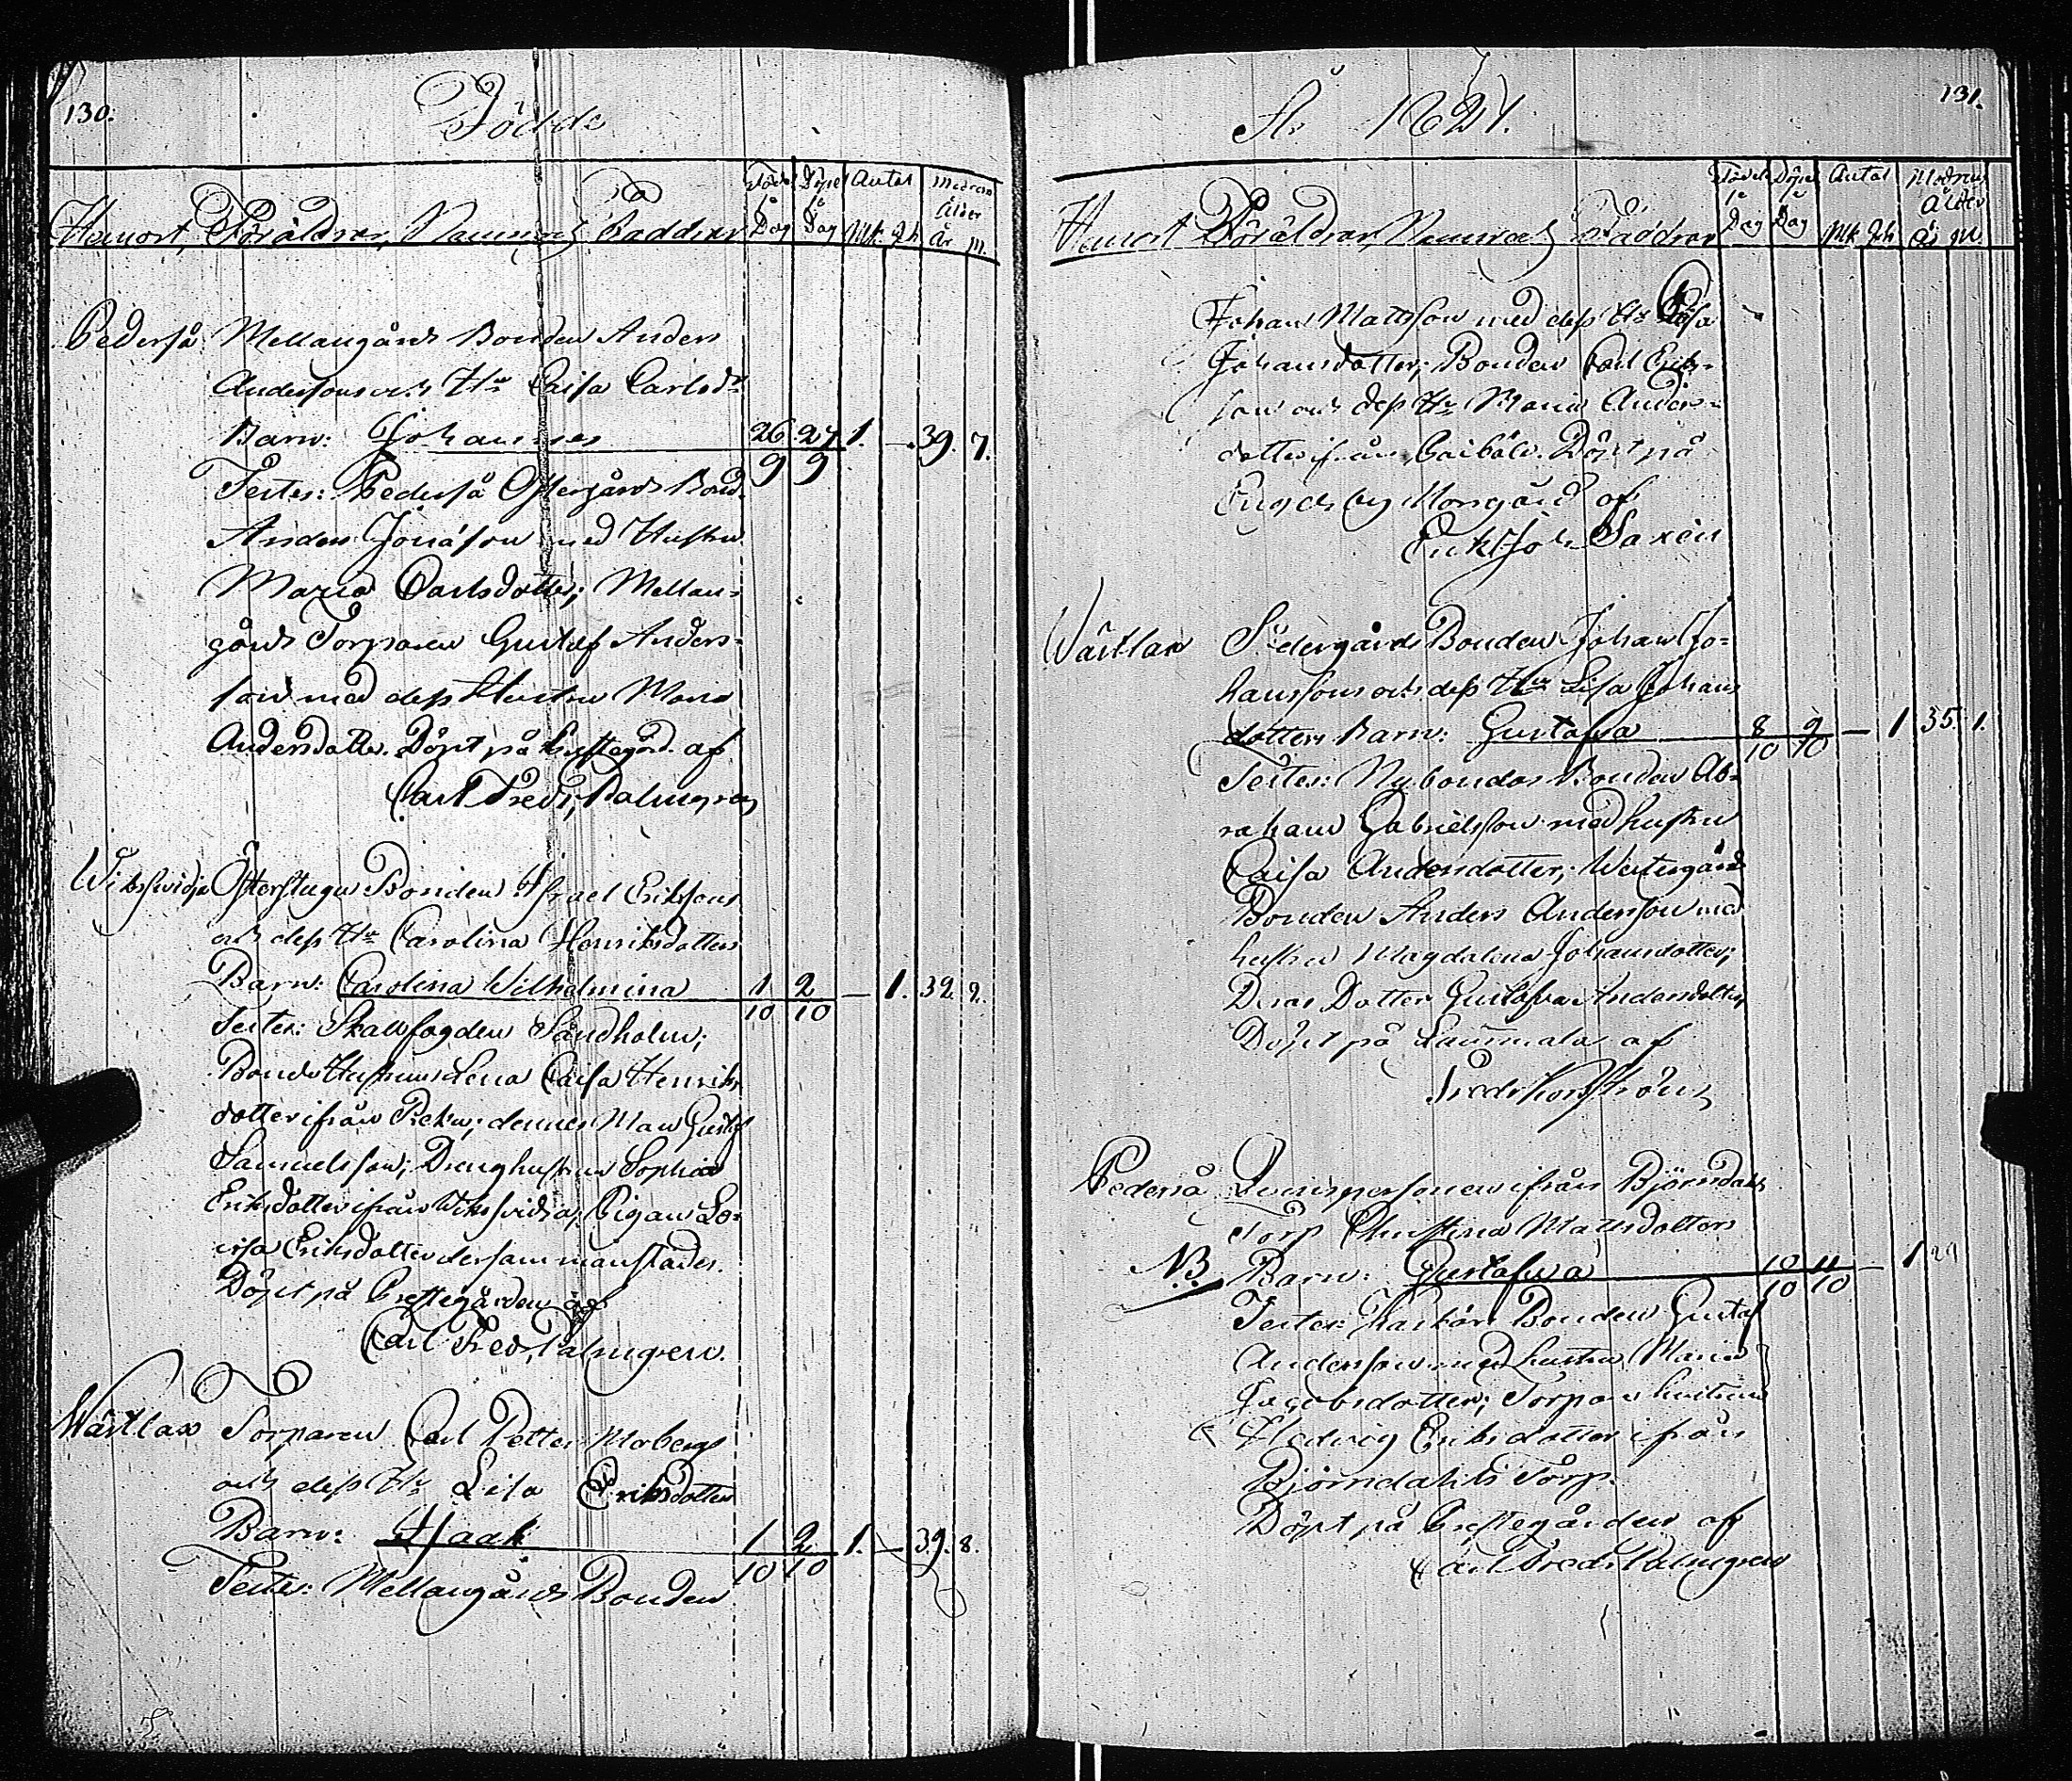 130.
Födde
Hemort, Föräldrar, Namn och Faddrar
Födels Dag
Döpels Dag
Antal
Mk. Qk.
Modrens Ålder
År M.
Pederså Mellangårds Bonden Anders
Anderssons och Hu Caisa Carlsdr
Barn: Johannes 26/9 27/9 1. — 39. 7.
Testes: Pederså Östergårds Bond.
Anders Jönsson med Hustru
Maria Carlsdotter; Mellan-
gårds Torparen Gustaf Anders-
son med dess Hustru Maria
Andersdotter. Döpt på Prestegård. af
Carl Fredr. Palmgren
Wiksvidja Österstugu Bonden Israel Erikssons
och dess Hu Carolina Henriksdotters
Barn: Carolina Wilhelmina 1/10 2/10 — 1. 32. 9.
Testes: Skallfogden Sandholm;
Bonde Hustrun Lena Caisa Henriks
dotter ifrån Reku; dennes Man Gustaf
Samuelsson; Dräng hustrun Sophia
Eriksdotter ifrån Wiksvidja; Pigan Lo-
visa Eriksdotter dersammanstädes.
Döpt på Prestegården af
Carl Fred. Palmgren.
Wärtlax Torparen Carl Petter Moberg
och dess Hu Lisa Eriksdotter
Barn: Isaak 1/10 2/10 1. — 39. 8.
Testes: Mellangårds Bonden
131.
År 1821.
Hemort Föräldrar, Namn och Faddrar
Födels Dag
Döpels Dag
Antal
Mk Qk
Modrens Ålder
År M.
Johan Mattsson med dess Hu Caisa
Johansdotter; Bonden Carl Eriks-
son och dess Hu Maria Anders-
dotter ifrån Döpt på
Norrgård af
Erik Joh. Saxén
Wärtlax Södergårds Bonden Johan Jo-
hanssons och dess Hu Lisa Johans
dotters Barn: Gustafva 8/10 9/10 — 1 35. 1.
Testes: Nybondas Bonden Ab-
raham Gabrielsson med hustru
Caisa Andersdotter; Westergårds
Bonden Anders Andersson med
hustru Magdalena Johansdotter;
Deras Dotter Gustafva Andersdotter,
Döpt på Lammala af
Fredr. Forsström
Pederså Qvinspersonen ifrån Björndahls
Torp Christina Mattsdotters
NB. Barn: Gustafva 10/10 11/10 — 1 29
Testes: Bonden Gustaf
Andersson med hustru Maria
Jacobsdotter; Torpare hustrun
Hedvig Eriksdotter ifrån
Björndahls Torp.
Döpt på Prestegården af
Carl Fredr. Palmgren